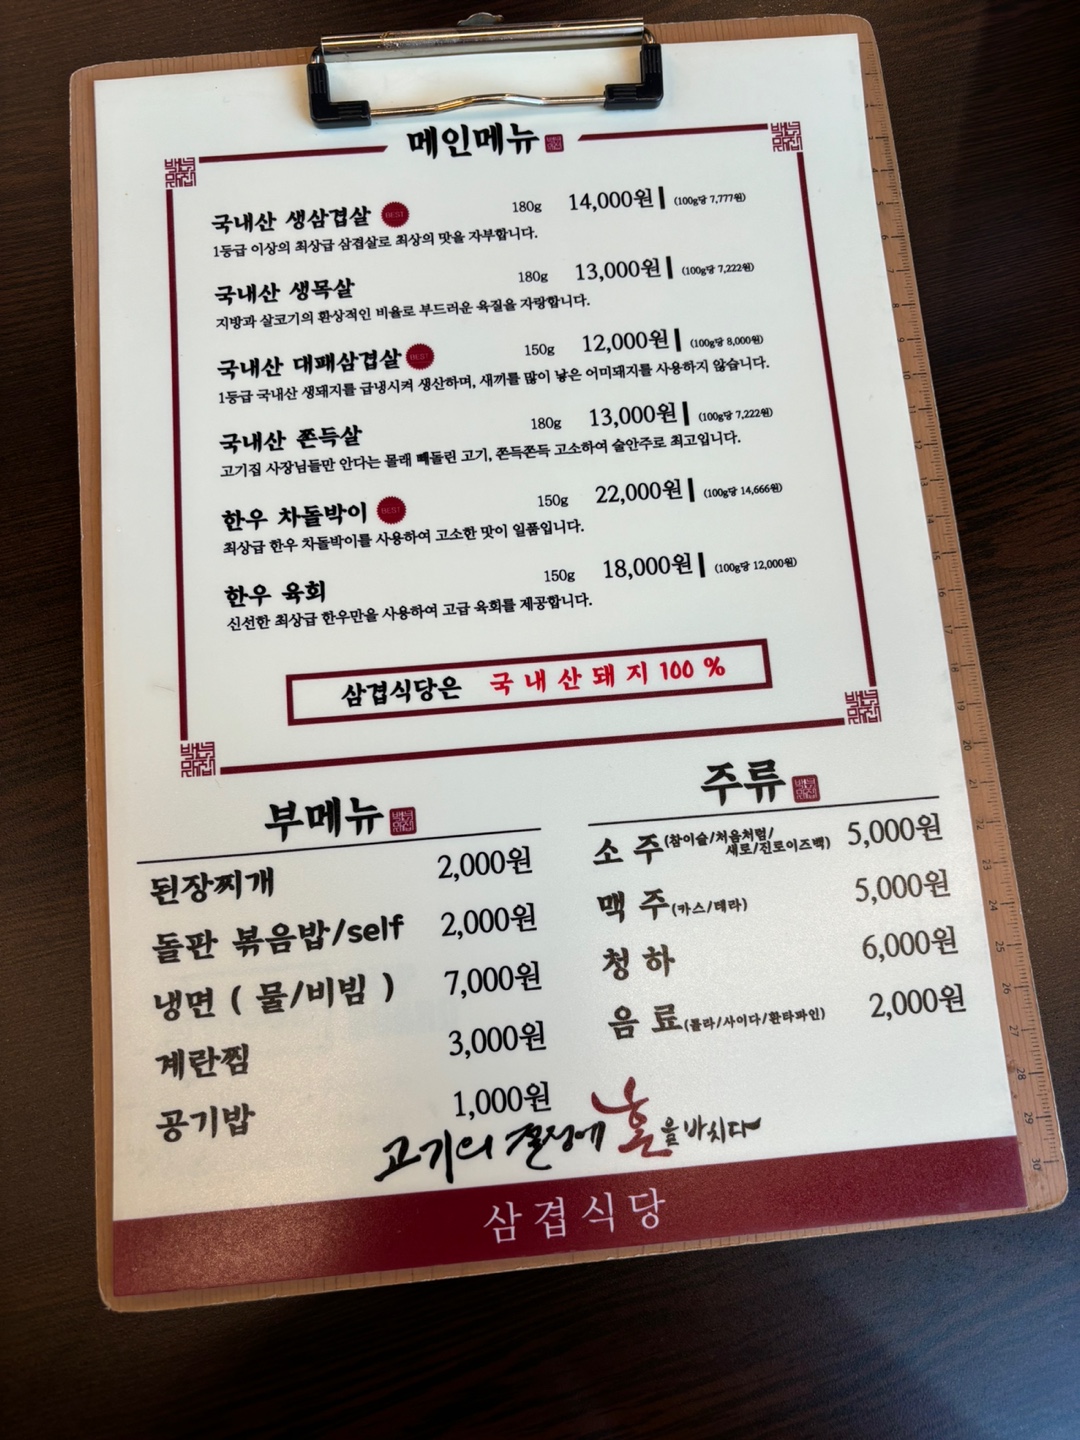 메인메뉴
국내산 생삼겹살 BEST 180g 14,000원 (100g당 7,777원)
1등급 이상의 최상급 삼겹살로 최상의 맛을 자부합니다.
국내산 생목살 180g 13,000원 (100g당 7,222원)
지방과 살코기의 환상적인 비율로 부드러운 육질을 자랑합니다.
국내산 대패삼겹살 BEST 150g 12,000원 (100g당 8,000원)
1등급 국내산 생돼지를 급냉시켜 생산하며, 새끼를 많이 낳은 어미돼지를 사용하지 않습니다.
국내산 쫀득살 180g 13,000원 (100g당 7,222원)
고기집 사장님들만 안다는 몰래 빼돌린 고기, 쫀득쫀득 고소하여 술안주로 최고입니다.
한우 차돌박이 BEST 150g 22,000원 (100g당 14,666원)
최상급 한우 차돌박이를 사용하여 고소한 맛이 일품입니다.
한우 육회 150g 18,000원 (100g당 12,000원)
신선한 최상급 한우만을 사용하여 고급 육회를 제공합니다.
삼겹식당은 국내산돼지100%
부메뉴
된장찌개 2,000원
돌판 볶음밥/self 2,000원
냉면 ( 물/비빔 ) 7,000원
계란찜 3,000원
공기밥 1,000원
주류
소 주(참이슬/처음처럼/
새로/진로이즈백) 5,000원
맥 주(카스/테라) 5,000원
청 하 6,000원
음 료(콜라/사이다/환타파인) 2,000원
고기의 열정에 혼을 바치다
삼겹식당